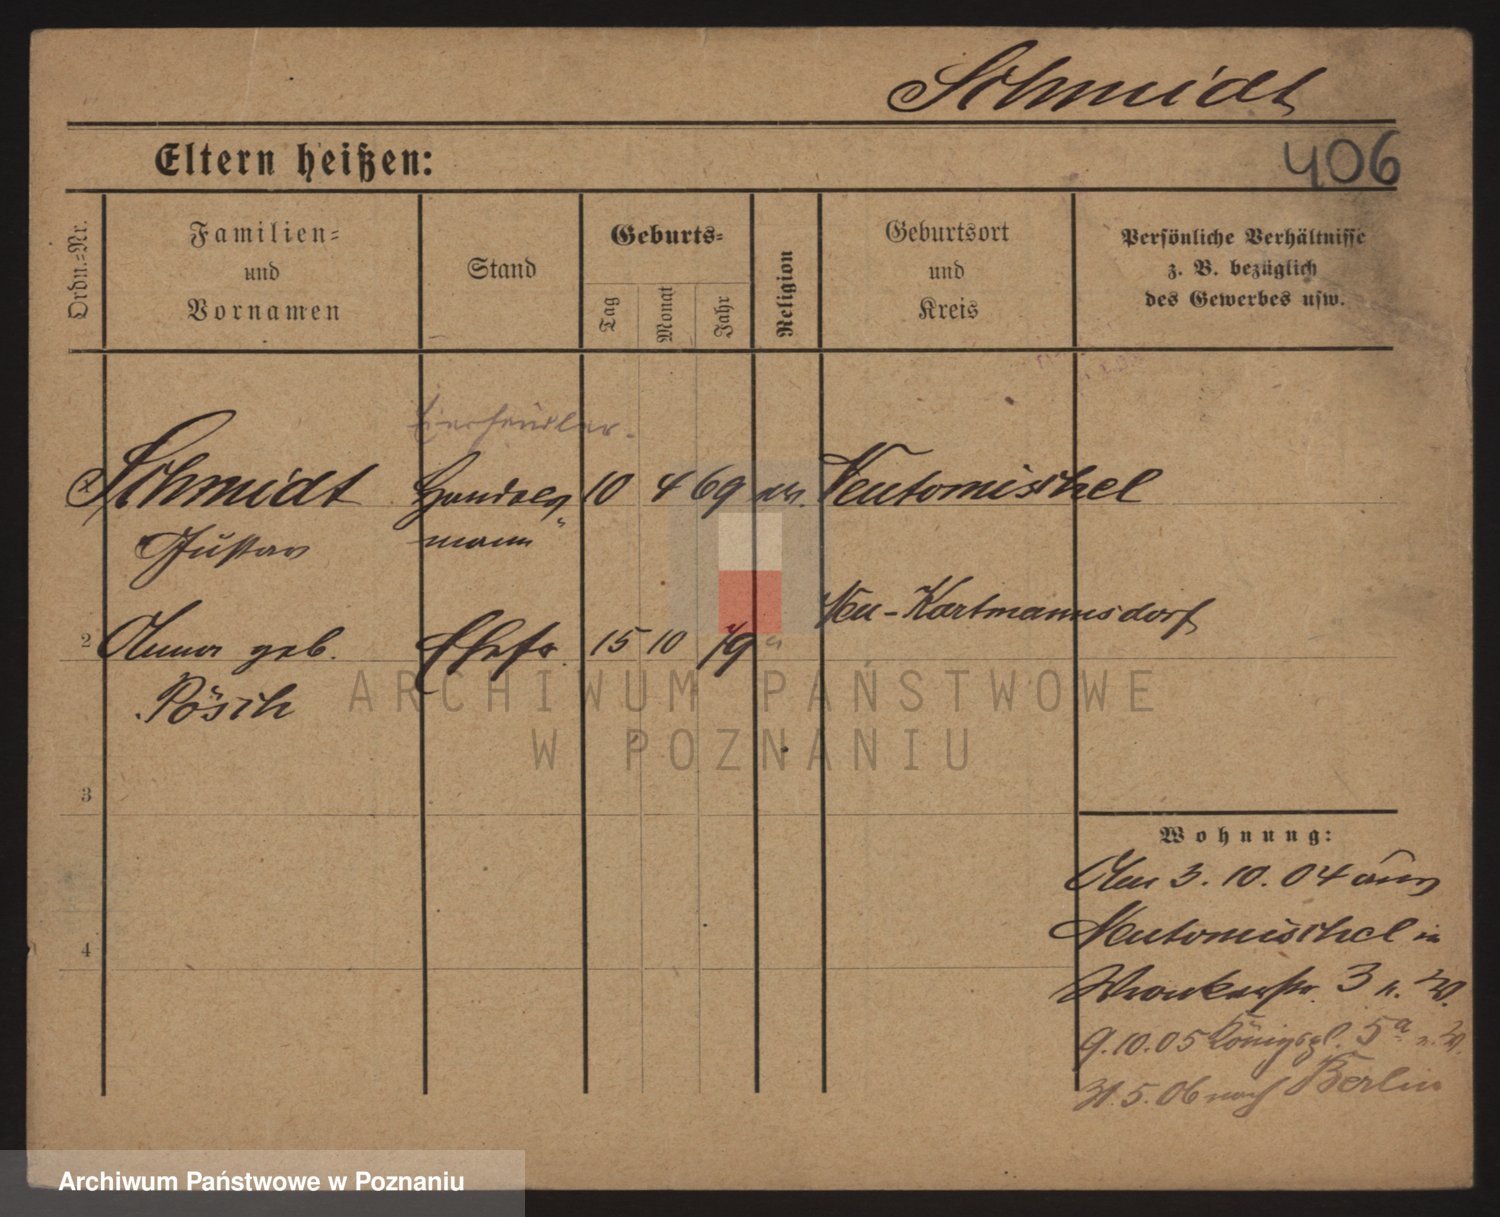 Schmidt
406
Eltern heißen:
Ordn.-Nr.
Familien-
und
Vornamen
Stand
Geburts-
Tag
Monat
Jahr
Religion
Geburtsort
und
Kreis
Persönliche Verhältnisse
z. B. bezüglich
des Gewerbes usw.
Eierhändler.
Schmidt Handels 10 4 69 Neutomischel
Gustav mann
Neu-Kartmannsdorf
2 Anna geb. Ehefr. 15 10 79
Pösch
ARCHIWUM PAŃSTWOWE
W POZNANIU
3
Wohnung:
Am 3. 10. 04 aus
Neutomischel in
4
Wronkerstr. 3 n. W.
9.10.05 Königspl. 5a n. W.
31.5.06 nach Berlin
Archiwum Państwowe w Poznaniu